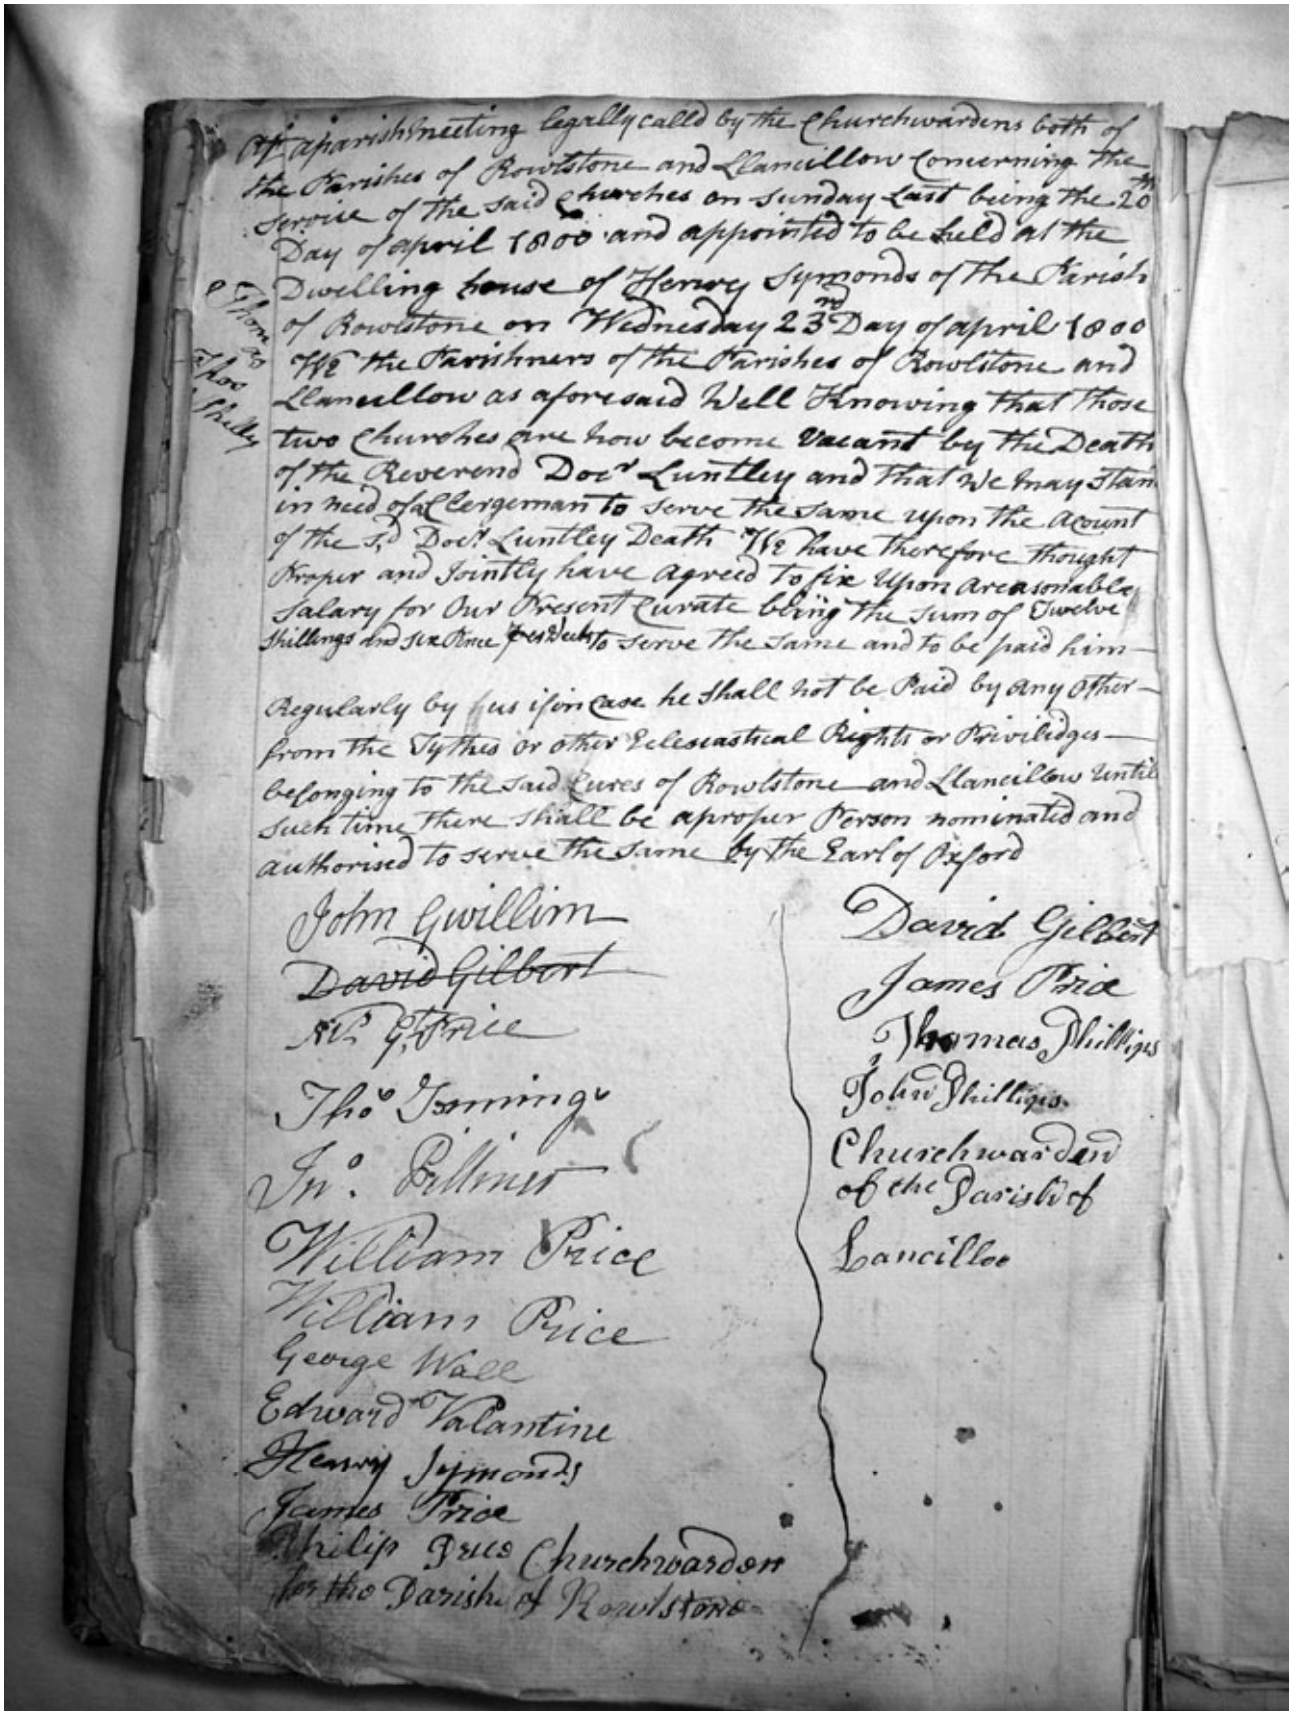 At aparish meeting legally calld by the Churchwardens both of
the Parishes of Rowlstone and Llancillow Concerning the
service of the said Churches on Sunday Last being the 20th
Day of april 1800 and appointed to be held at the
Dwelling house of Henry Symonds of the Parish
of Rowlstone on Wednesday 23rd Day of april 1800
We the Parishners of the Parishes of Rowlstone and
Llancillow as aforesaid Well Knowing that those
two Churches are now become Vacant by the Death
of the Reverend Docr Luntley and that We may stan
in need of a Clergeman to serve the same upon the Acount
of the sd Docr Luntley Death We have therefore thought
Proper and Jointly have Agreed to fix Upon areasonable
Salary for Our Present Curate being the sum of Twelve
Shillings and six Pence per Week to serve the same and to be paid him—
Regularly by us if in Case he shall not be Paid by any Other—
from the Tythes or other Eclesiastical Rights or Privilidges—
belonging to the said Cures of Rowlstone and Llancillow Until
Such time there shall be aproper Person nominated and
authorised to serve the same by the Earl of Oxford
Thomas
Shelly
John Gwillim
David Gilbert
Price
Thos
Jno.
William Price
William Price
George Wall
Edward Valantine
Henry Symonds
James Price
Philip Churchwarden
for the Parish of Rowlstone
David Gilbert
James Price
Thomas Phillips
John Phillips
Churchwarden
of the Parish of
Lancilloo